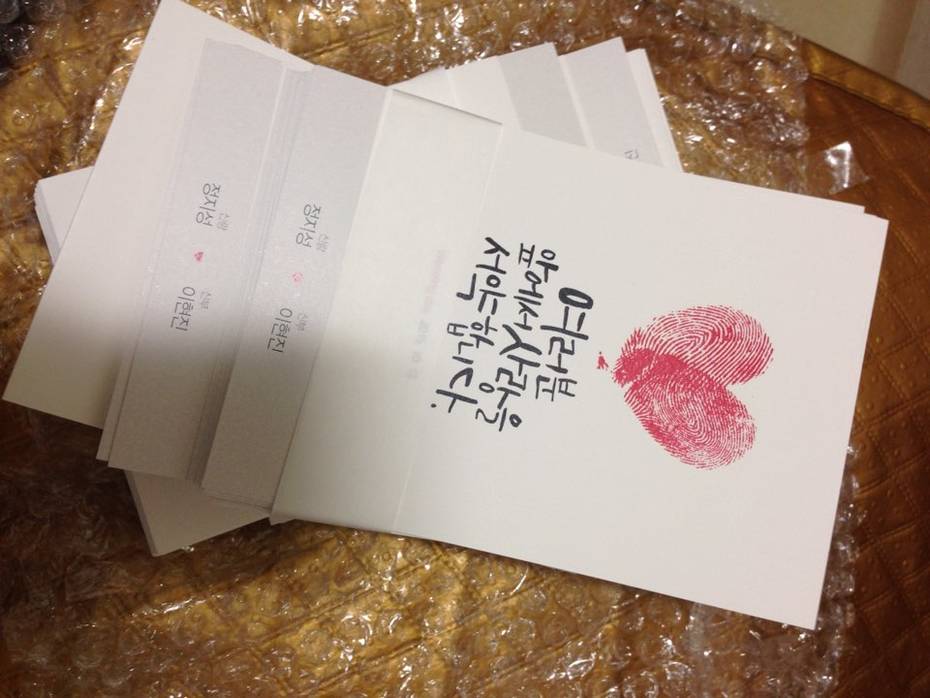 여러분
앞에서사랑을
서약두합니다.
신랑
정지성 ♥ 이현진
신부
신랑
정지성 ♥ 이현진
신부